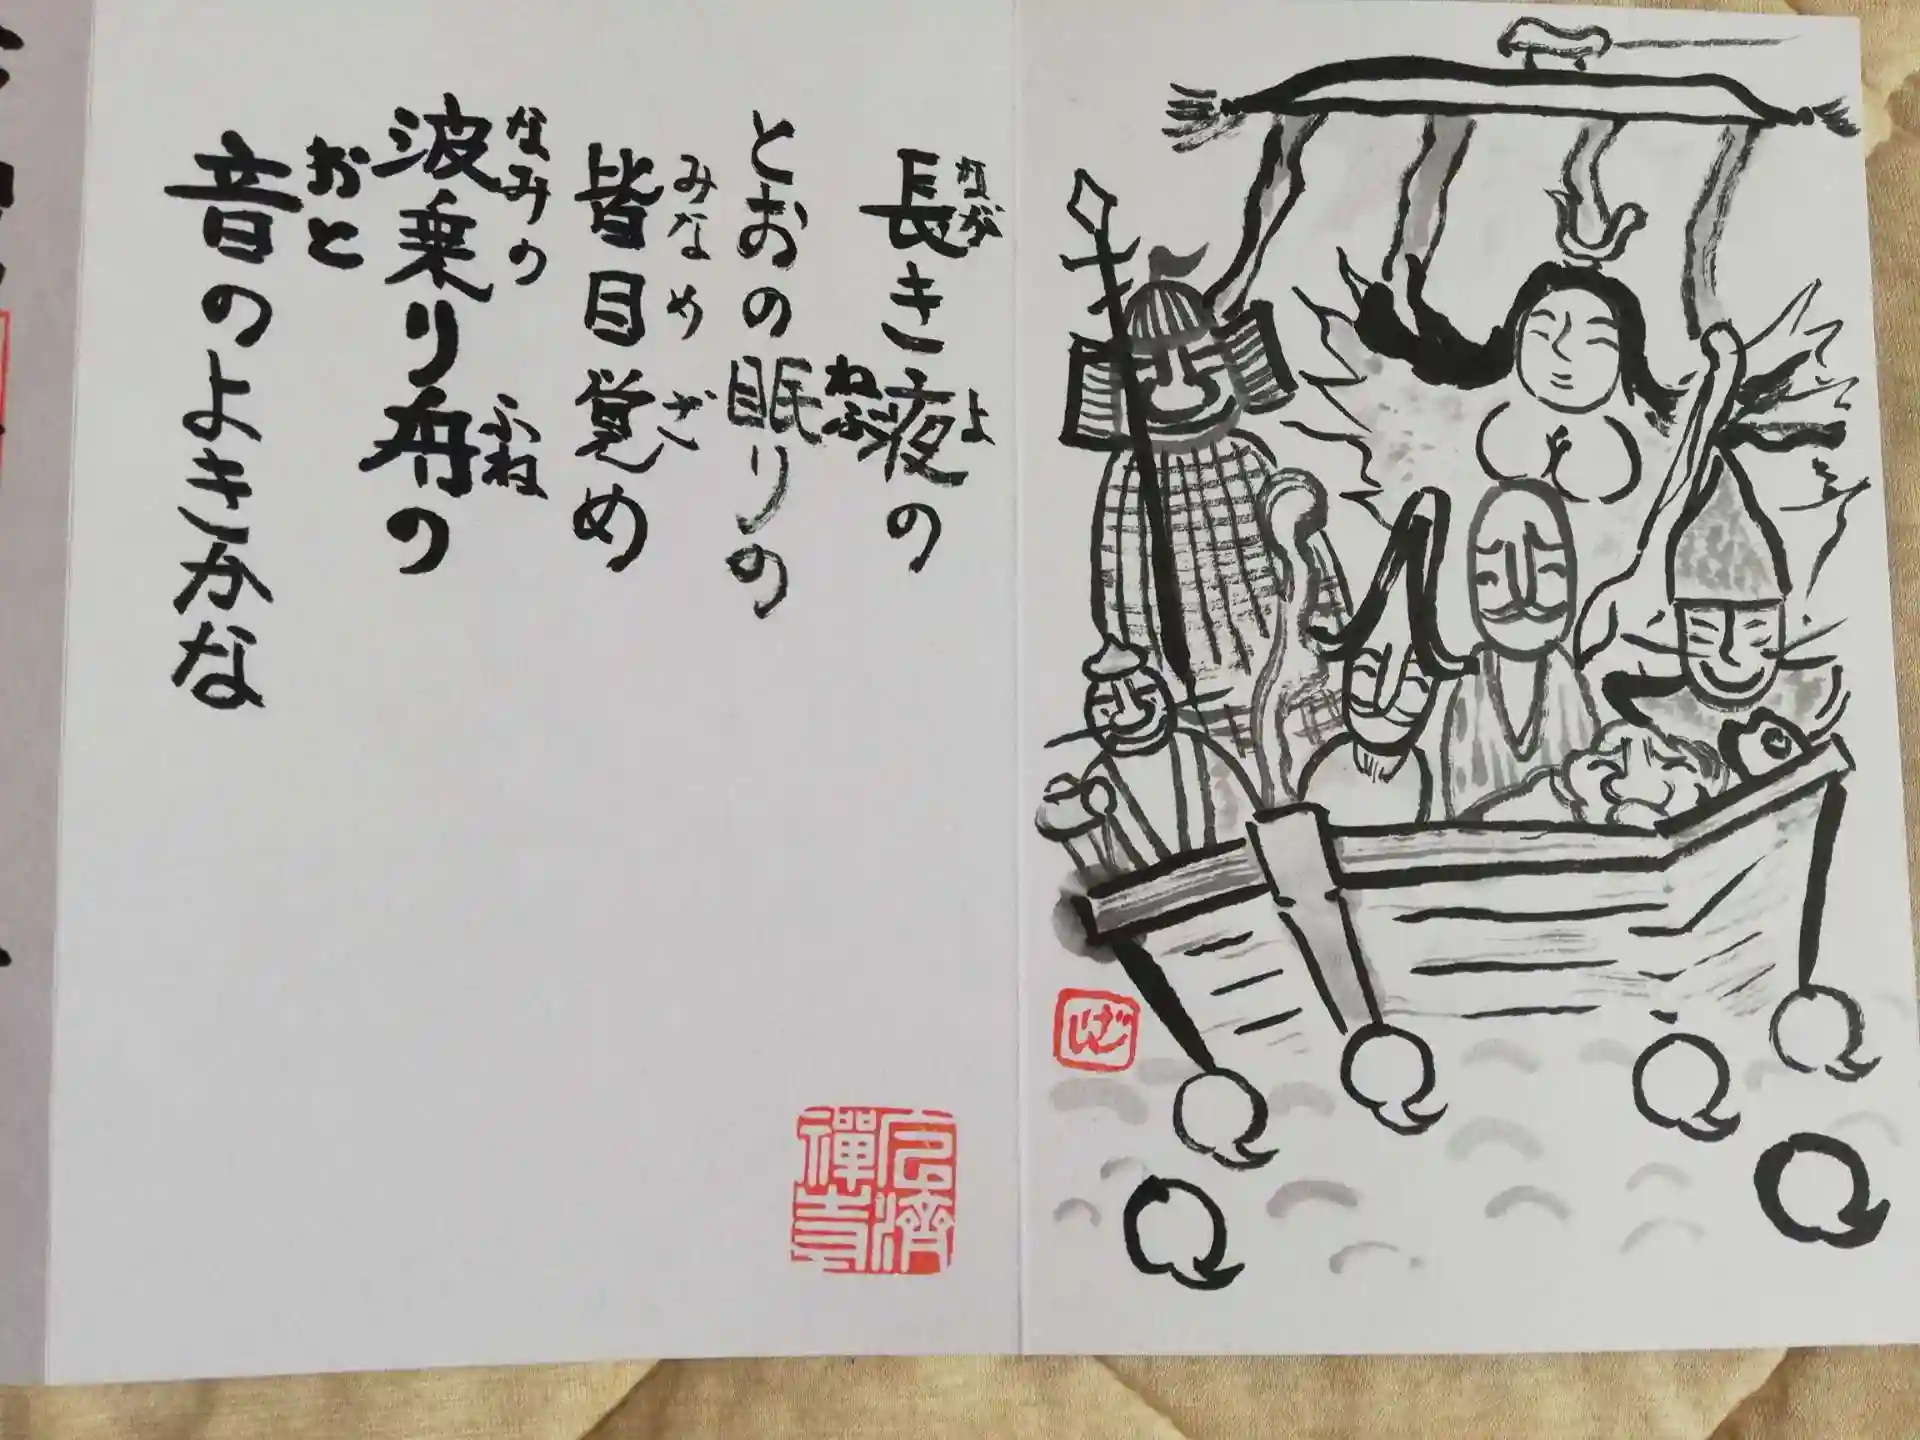 長き夜の
とおの眠りの
皆目覚め
波乗り舟の
音のよきかな
なが
よ
ねぶ
みなめざ
なみの
ふね
おと
しげ
禅寺